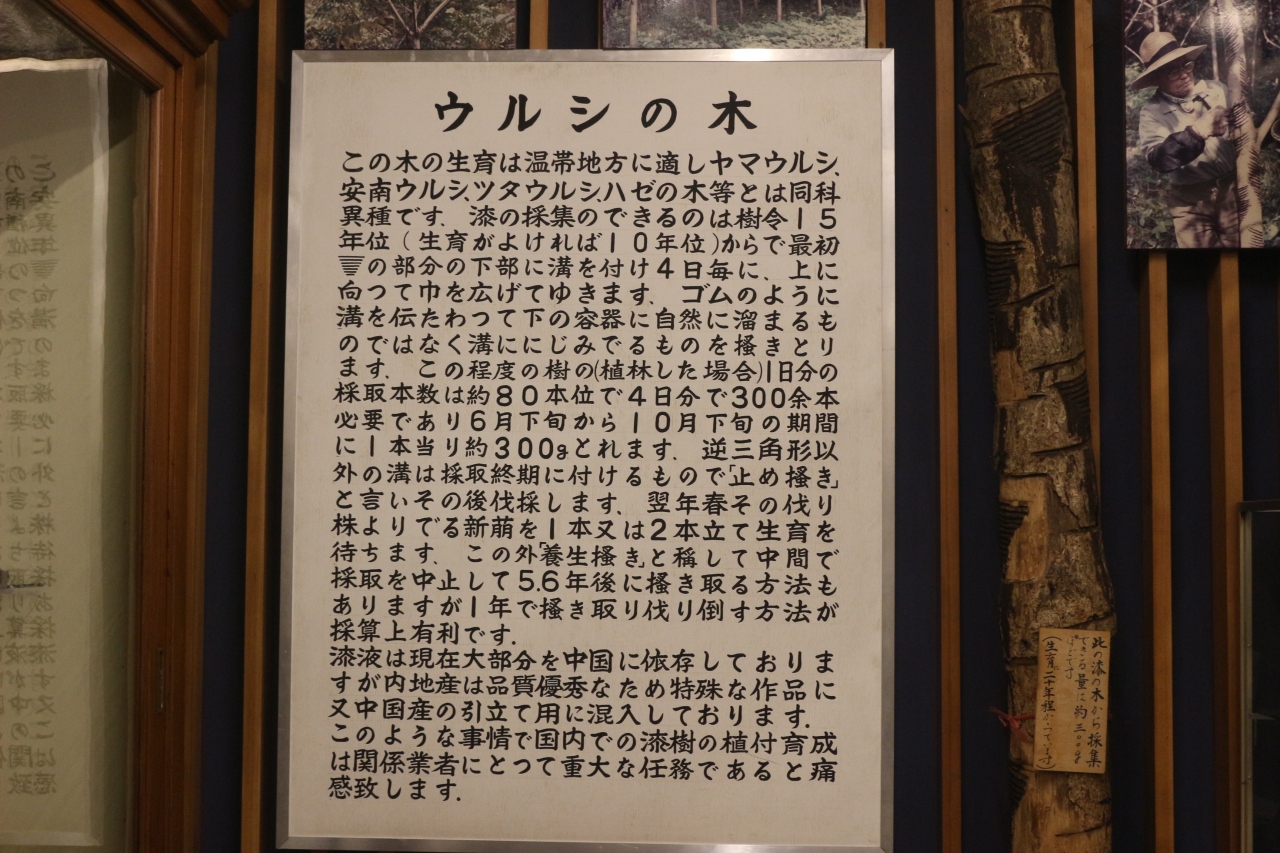 ウルシの木
この木の生育は温帯地方に適しヤマウルシ、
安南ウルシ、ツタウルシ、ハゼの木等とは同科
異種です、漆の採集のできるのは樹令15
年位(生育がよければ10年位)からで最初
の部分の下部に溝を付け4日毎に、上に
向つて巾を広げてゆきます、ゴムのように
溝を伝たわつて下の容器に自然に溜まるも
のではなく溝ににじみでるものを掻きとり
ます、この程度の樹の(植林した場合)1日分の
採取本数は約80本位で4日分で300余本
必要であり6月下旬から10月下旬の期間
に1本当り約300gとれます、逆三角形以
外の溝は採取終期に付けるもので「止め掻き」
と言いその後伐採します、翌年春その伐り
株よりでる新萠を1本又は2本立て生育を
待ちます、この外「養生掻き」と稱して中間で
採取を中止して5.6年後に掻き取る方法も
ありますが1年で掻き取り伐り倒す方法が
採算上有利です.
漆液は現在大部分を中国に依存しておりま
すが内地産は品質優秀なため特殊な作品に
又中国産の引立て用に混入しております.
このような事情で国内での漆樹の植付育成
は関係業者にとつて重大な任務であると痛
感致します.
此の漆の木から採集
できる量は約三〇〇g
です
(生育二十年程たっています)